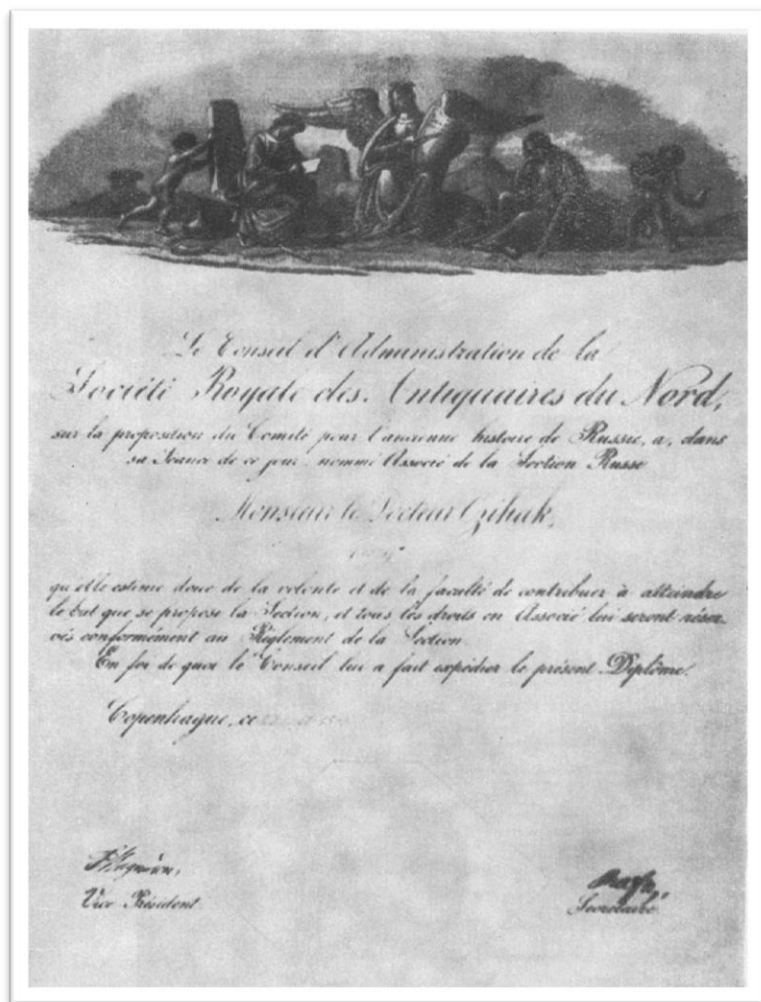 Le Conseil d'Administration de la
Société Royale des Antiquaires du Nord,
sur la proposition du Comité pour l'ancienne histoire de Russie, a, dans
sa Séance de ce jour nommé Associé de la Section Russe
Monsieur le Docteur Czihak,
qu'elle estime doué de la volonté et de la faculté de contribuer à atteindre
le but que se propose la Section, et tous les droits en Associé lui seront réser-
vés conformément au Réglement de la Section.
En foi de quoi le Conseil lui a fait expédier le présent Diplôme.
Copenhague, ce
Vice Président
Secrétaire